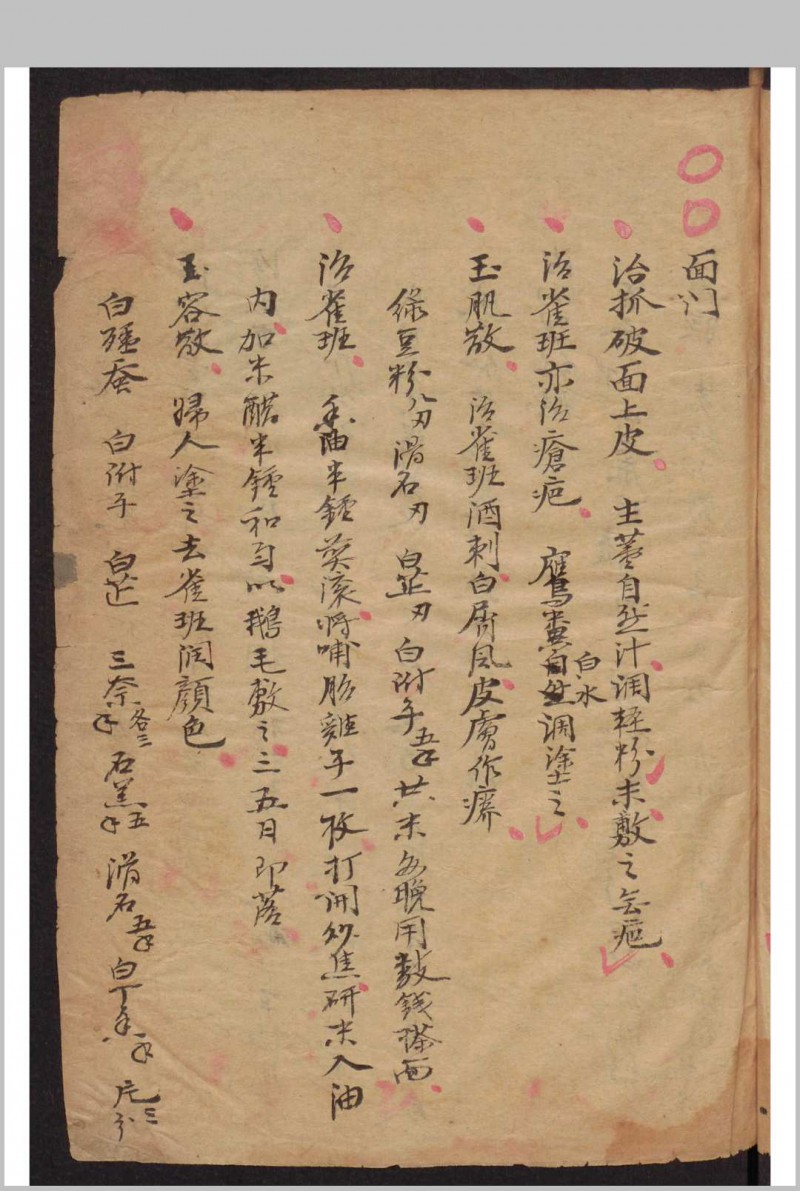 面门
治抓破面上皮 生薑自然汁调輕粉末敷之無疤
治雀班亦治瘡疤 鷹糞白水调塗之
玉肌散 治雀班酒刺白屑风皮膚作癢
绿豆粉八刄 滑石刄 白芷刄 白附子五 共末 每晚用数錢搽面
治雀班 香油半鍾煎滚将哺胎雞子一枚打開炒焦研末入油
内加米醋半鍾和匀以鵝毛敷之三五日即落
玉容散 婦人塗之去雀班润顔色
白殭蚕 白附子 白芷 三奈各三 石羔五 滑石五 白丁香 片三分